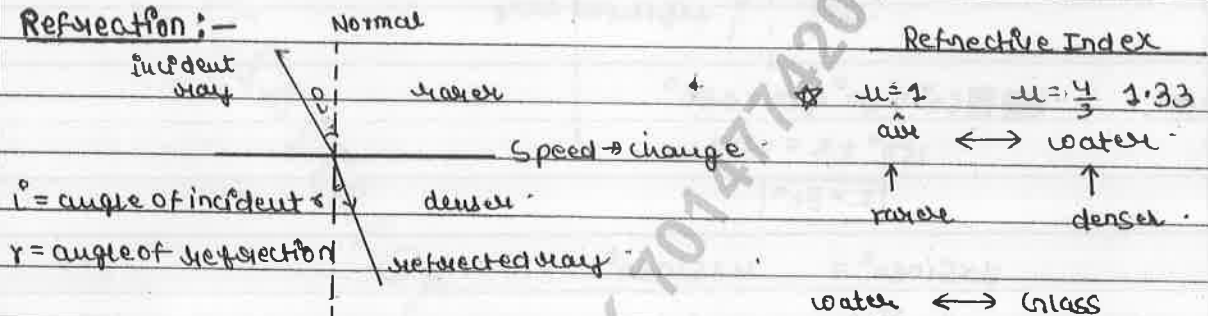 Refreation :-
Normal
Refrective Index
incident
ray
i
rarer
☆ μ=1
μ=4/3 1.33
air ↔ water
Speed → change
↑ ↑
i = angle of incident
r
denser
rarere
denser
r = angle of refrection
refrected ray
water ↔ Glass
7014777420